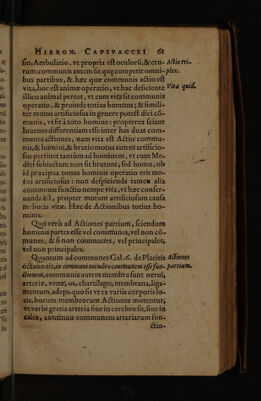 HIERON. CAPIVACCEI 61
sio, Ambulatio, vt propria est oculorũ, & cru-
rum: communis autem sit quę competit omni-
bus partibus, & hæc quæ communis actio est
vita, hoc est animæ operatio, vt hac deficiente
illico animal pereat, vt cum vita sit communis
operatio, & proinde totius hominis; & simili-
ter motus artificiosus in genere potest dici cõ-
munis, vt fit à toto homine: propterea sciunt
Iuuenes differentiam esse inter has duas com-
munes actiones, nam vita est Actio commu-
nis, & homini, & brutis: motus autem artificio-
sus pertinet tantùm ad hominem, vt cum Me-
dici subiectum non sit brutum, sed homo, ob
id præcipua totius hominis operatio erit mo-
tus artificiosus: non despicienda tamen alia
communis functio nempe vita, vt hæc conser-
uanda est, propter motum artificiosum causa
m: hoctæ vitæ. Hæc de Actionibus totius ho-
minis.
Quo verò ad Actiones partium, sciendum
hominis partes esse vel communes, vel non cõ-
munes, & si non communes, vel principales,
vel non principales.
Quantum ad communes Gal. 6. de Placitis
octauo ait, in communi membro communem esse fun-
ctionem, communia autem membra sunt nerui,
arteriæ, venæ, os, chartilago, membrana, liga-
mentum, adeps. quo fit vt ex varijs corporis lo-
cis, horum membrorum Actiones mutentur,
vt verbi gratia arteria siue in cerebro sit, siue in
calce, continuo communem arteriarum fun-
ctio-
Actio tri-
plex.
Vita quid.
Actiones
partium.